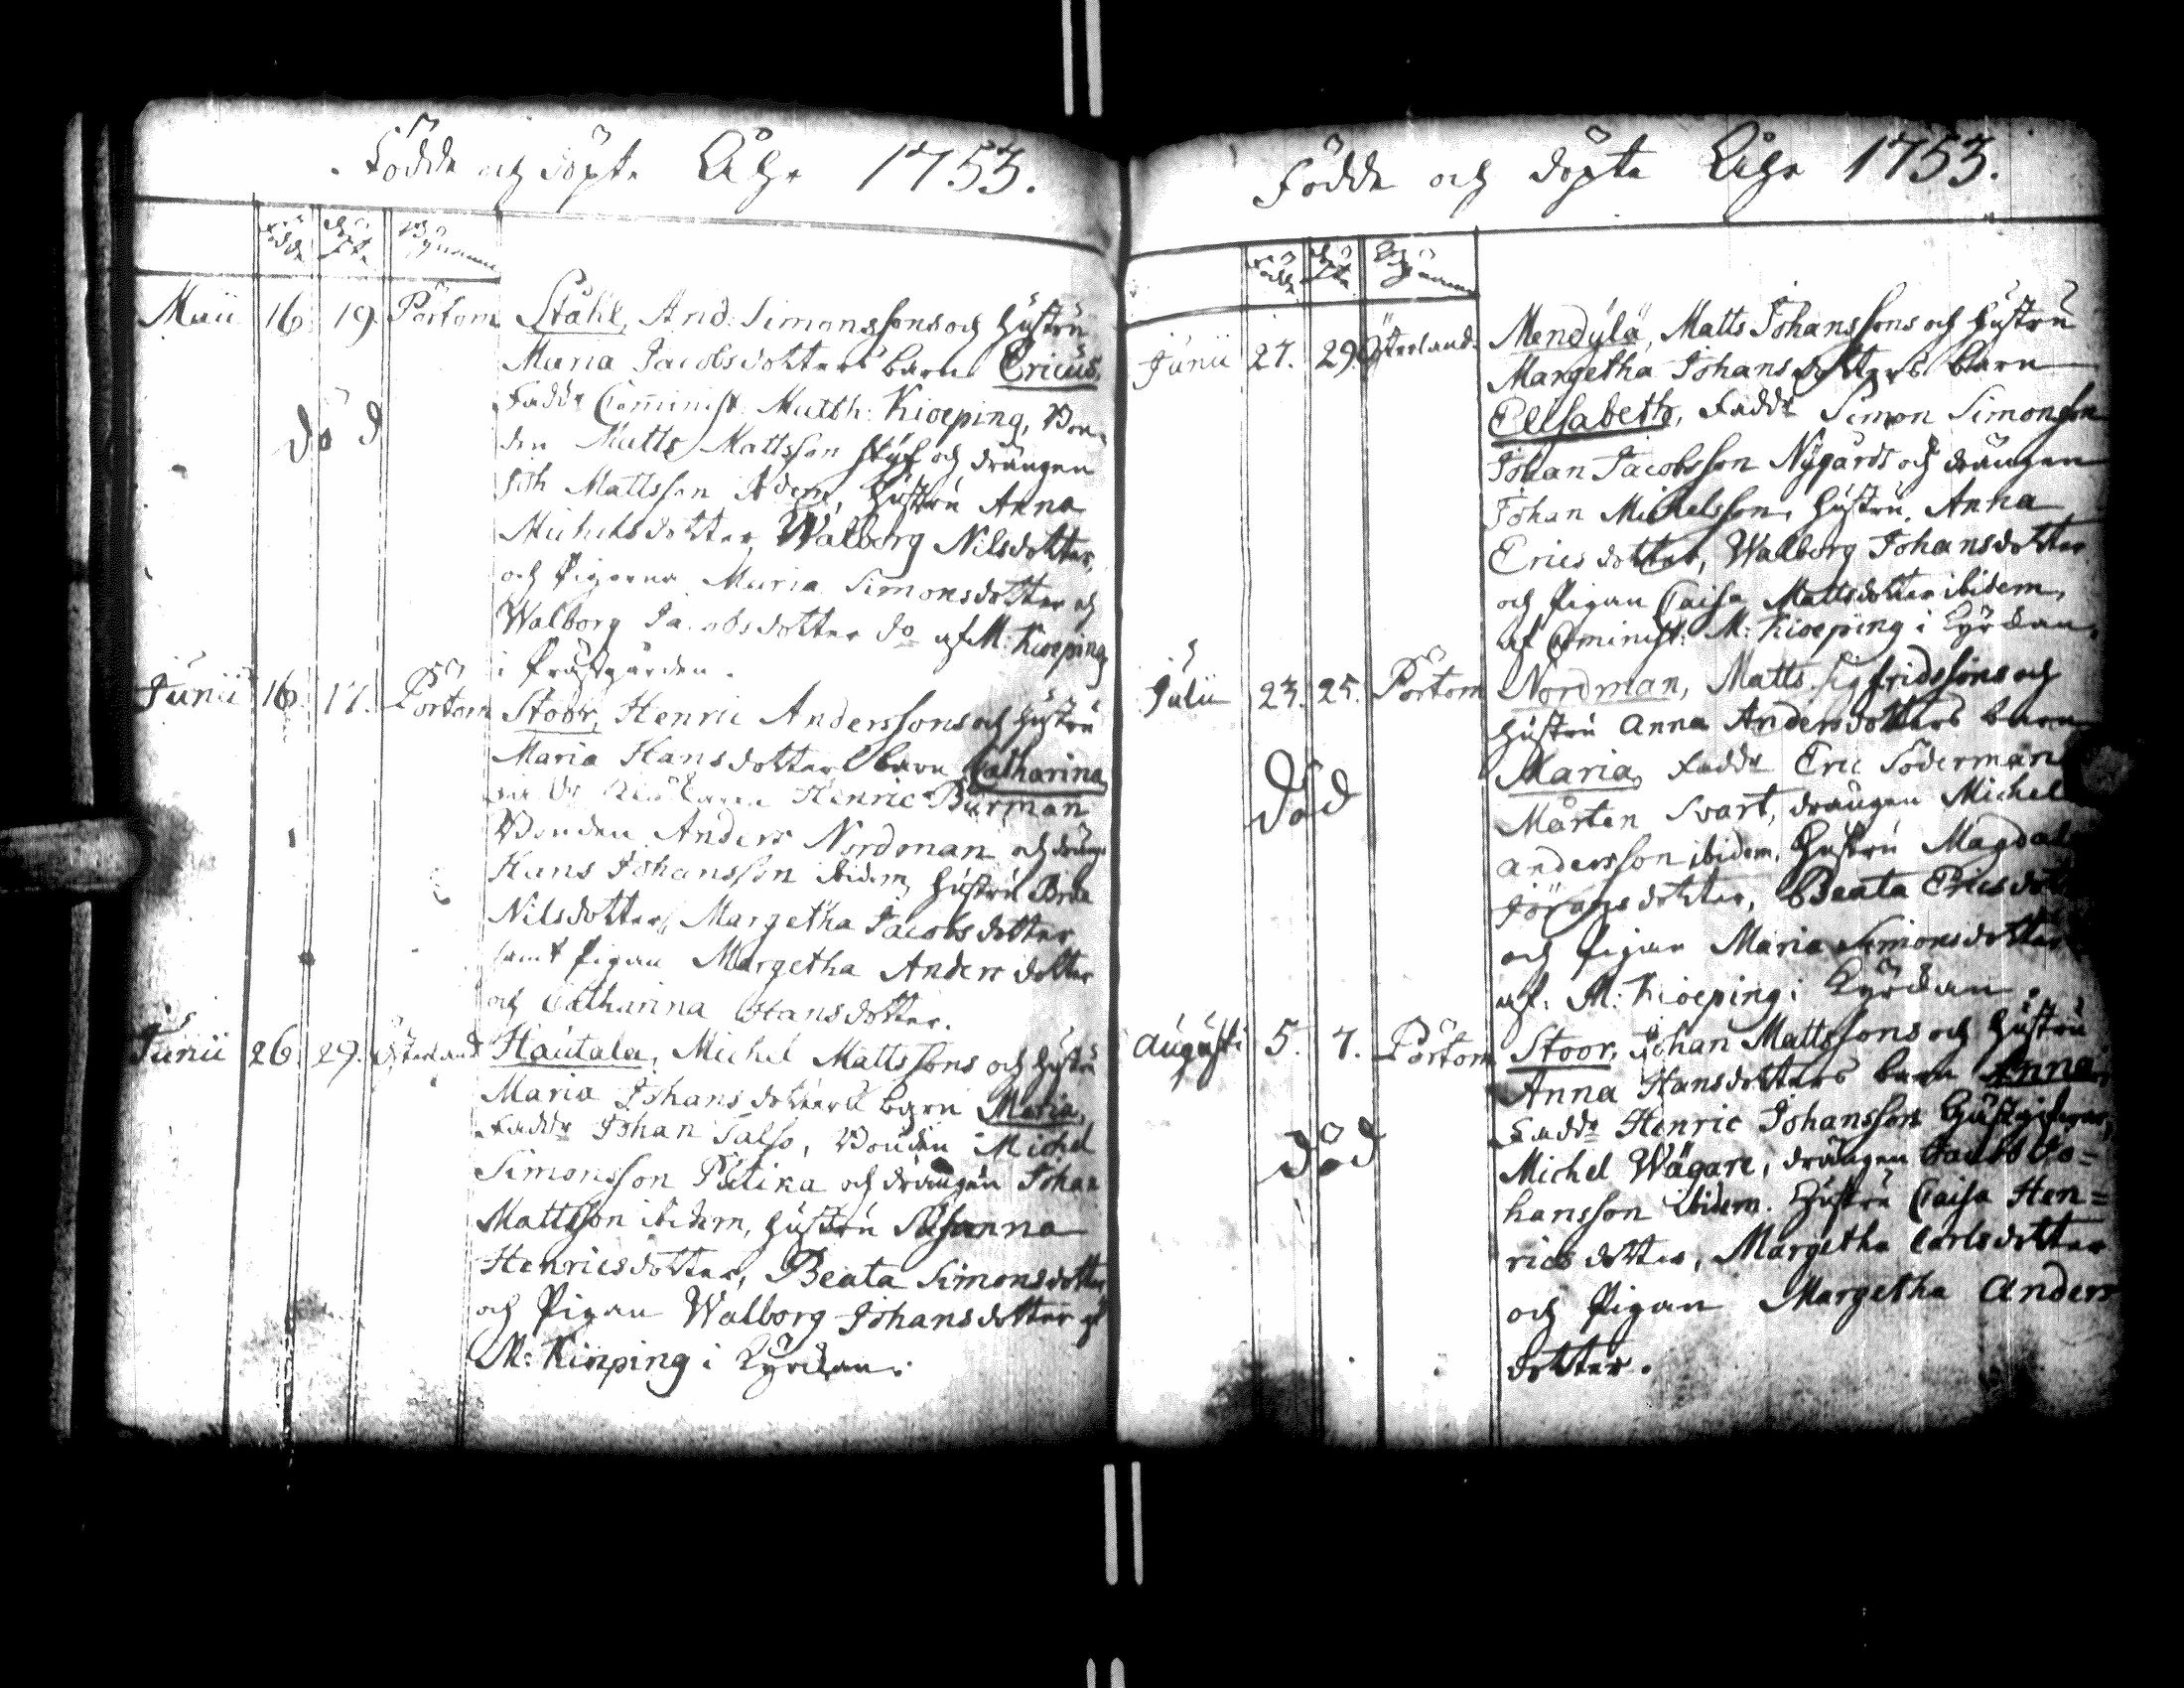 Födde och döpte Åhr 1753.
Födde döpte Byarne
Maii 16 19. Pörtom Ståhl, And: Simonssons och hustru
Maria Jacobsdotters barn Ericus.
Faddr Comminist. Matth: Kioeping, Bon-
död
den Matts Mattsson och drängen
Joh Mattsson Adem, hustru Anna
Michelsdotter, Walborg Nilsdotter,
och Pigorna Maria Simonsdotter och
Walborg Jacobsdotter do af M: Kioeping
i Prästgården.
Junii 16. 17. Pörtom Stoor, Henric Anderssons och hustru
Maria Hansdotters barn Catharina
Henric Burman
Bonden Anders Nordman och dräng
Hans Johansson ibidem, hustru Brita
Nilsdotter, Margetha Jacobsdotter
samt Pigan Margetha Andersdotter
och Catharina Hansdotter.
Junii 26. 29. Österland Hautala, Michel Mattssons och hustru
Maria Johansdotters barn Maria,
Faddr Johan Salso, Bonden Michel
Simonsson Putika och drängen Johan
Mattsson ibidem, hustru Susanna
Henricsdotter, Beata Simonsdotter
och Pigan Walborg Johansdotter af
M: Kioeping i Kyrckan.
Födde och döpte Åhr 1753.
Födde döpte Byarne
Junii 27. 29. Österland. Mendylä, Matts Johanssons och hustru
Margetha Johansdotters barn
Elisabeth, Faddr Simon Simonsson
Johan Jacobsson Nygårds och drängen
Johan Michelsson, hustru Anna
Ericsdotter, Walborg Johansdotter
och Pigan Caisa Mattsdotter ibidem,
af Cominist: M: Kioeping i Kyrckan.
Julii 23. 25. Pörtom Nordman, Matts Sigfridssons och
hustru Anna Andersdotters barn
död
Maria, Faddr Eric Söderman
Mårten Svart, drängen Michel
Andersson ibidem, hustru Magdal
Jöransdotter, Beata Ericsdot
och Pigan Maria Simonsdotter
af. M: Kioeping i Kyrckan.
Augusti 5. 7. Pörtom Stoor, Johan Mattssons och hustru
Anna Hansdotters barn Anna,
död
Faddr Henric Johansson
Michel Wägare, drängen Jacob Jo=
hansson ibidem. hustru Caisa Hen=
ricsdotter, Margetha Carlsdotter
och Pigan Margetha Anders
dotter.